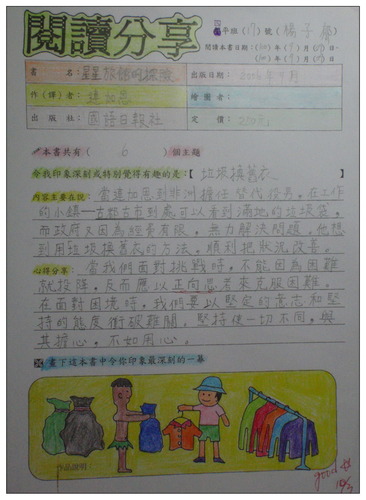 閱讀分享
四年班(17)號(楊子
閱讀本書日期：
書名：星星旅館
出版日期：
作(譯)者：連加恩
繪圖者：
出版社：國語日報社
定價：200元
本書共有(6)個主題
令我印象深刻或特別覺得有趣的是：【垃圾換舊衣】
內容主要在說：當連加恩到非洲擔任替代役男，在工作
的小鎮—古都古市到處可以看到滿地的垃圾袋，
而政府又因為經費有限，無力解決問題。他想
到用垃圾換舊衣的方法，順利把狀況改善。
心得分享：當我們面對挑戰時，不能因為困難
就投降，反而應以正向思考來克服困難。
在面對困境時，我們要以堅定的意志和堅
持的態度衝破難關。堅持使一切不同，與
其擔心，不如用心。
畫下這本書中令你印象最深刻的一幕
作品說明：
good